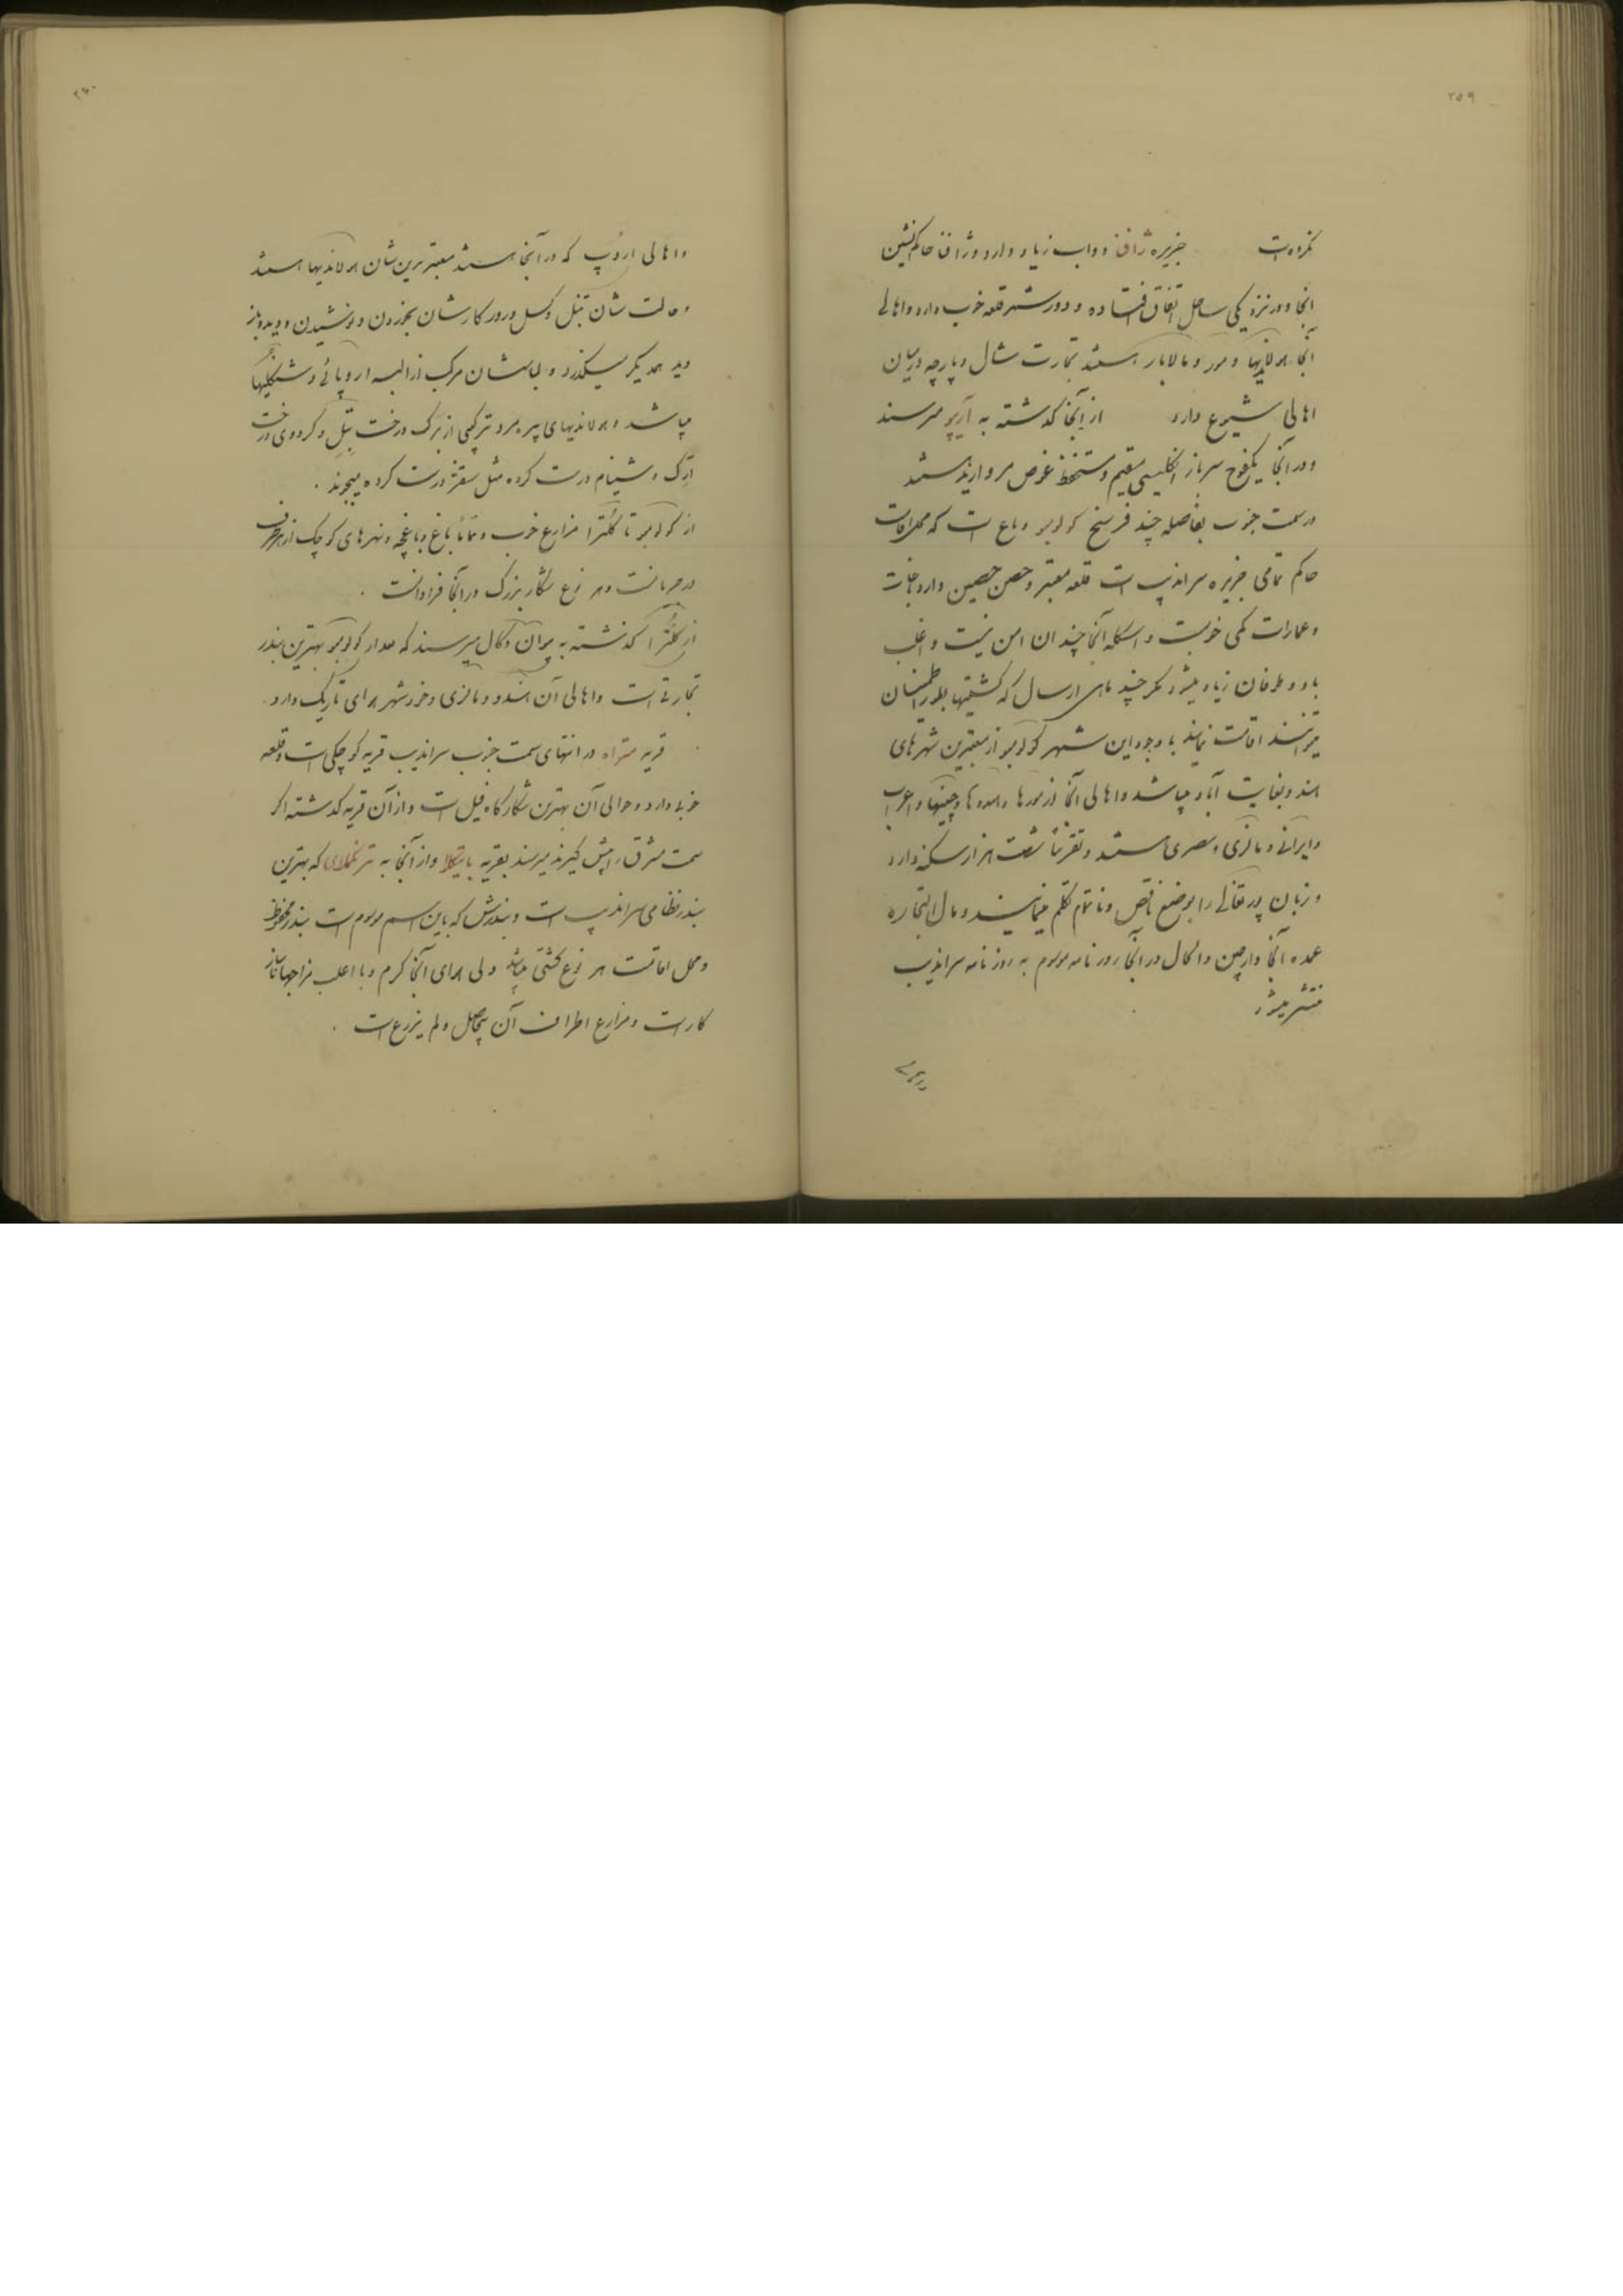 ۲۵۹
نکرده است جزیره ژافنا دواب زیاد دارد و ژافنا حاکم نشین
انجا و در نزدیکی ساحل اتفاق افتاده و دور شهر قلعه خوب دارد و اهالی
آنجا هولاندیها و مور و مالابار هستند تجارت شال و پارچه در میان
اهالی شیوع دارد از آنجا گذشته به آریپو میرسند
و در آنجا یکفوج سرباز انگلیسی مقیم و مستحفظ غوص مروارید هستند
در سمت جنوب بفاصله چند فرسخ کولومبو واقع است که محل اقامت
حاکم تمامی جزیره سراندیب است قلعه معتبر و حصن حصین دارد
و عمارات کمی خوبست و اسکله آنجا چندان امن نیست و اغلب
باد و طوفان زیاد میشود مگر چند ماهی از سال که کشتیها بطور اطمینان
میتوانند اقامت نمایند با وجود این شهر کولومبو از معتبرترین شهرهای
هند و بغایت آباد میباشد و اهالی آنجا از مورها و هندوها و چینیها و اعراب
و ایرانی و مالزی و مصری هستند و تقریباً شصت هزار سکنه دارد
و زبان پورتقالی را بوضع ناقص و ناتمام تکلم مینمایند و مال التجاره
عمده آنجا دارچین و در آنجا روزنامه موسوم به روزنامه سراندیب
منتشر میشود
۲۶۰
و اهالی اروپ که در آنجا هستند معتبرترین شان هولاندیها هستند
و حالت شان تنبل و کسل و روز کارشان بخوردن و نوشیدن و دید و باز
دید همدیگر میگذرد و لباسشان مرکب از البسه اروپائی و
میباشد و هولاندیهای پیر مرد ترکیبی از برگ درخت بتل و گردوی درخت
ارک و درست کرده مثل سقز درست کرده میجوند .
از کولومبو تا کلترا مزارع خوب و تماماً باغ و باغچه و نهرهای کوچک از هر طرف
در جریانست و هر نوع شکار بزرگ در آنجا فراوانست .
از کلترا گذشته به پوان دکال میرسند که بعد از کولومبو بهترین بندر
تجارتی است و اهالی آن هندو و مالزی و خود شهر هوای تاریک دارد .
قریه متراه در انتهای سمت جنوب سراندیب قریه کوچکی است و قلعه
خوبی دارد و حوالی آن بهترین شکارگاه فیل است و از آن قریه گذشته اگر
سمت مشرق را پیش گیرند میرسند بقریه باتیکلا و از آنجا به ترنکمالای که بهترین
بندر نظامی سراندیب است و بندرش که باین اسم موسوم است بندر محفوظ
و محل اقامت هر نوع کشتی میباشد ولی هوای آنجا گرم و با اغلب مزاجها ناساز
کار است و مزارع اطراف آن بیحاصل و لم یزرع است .